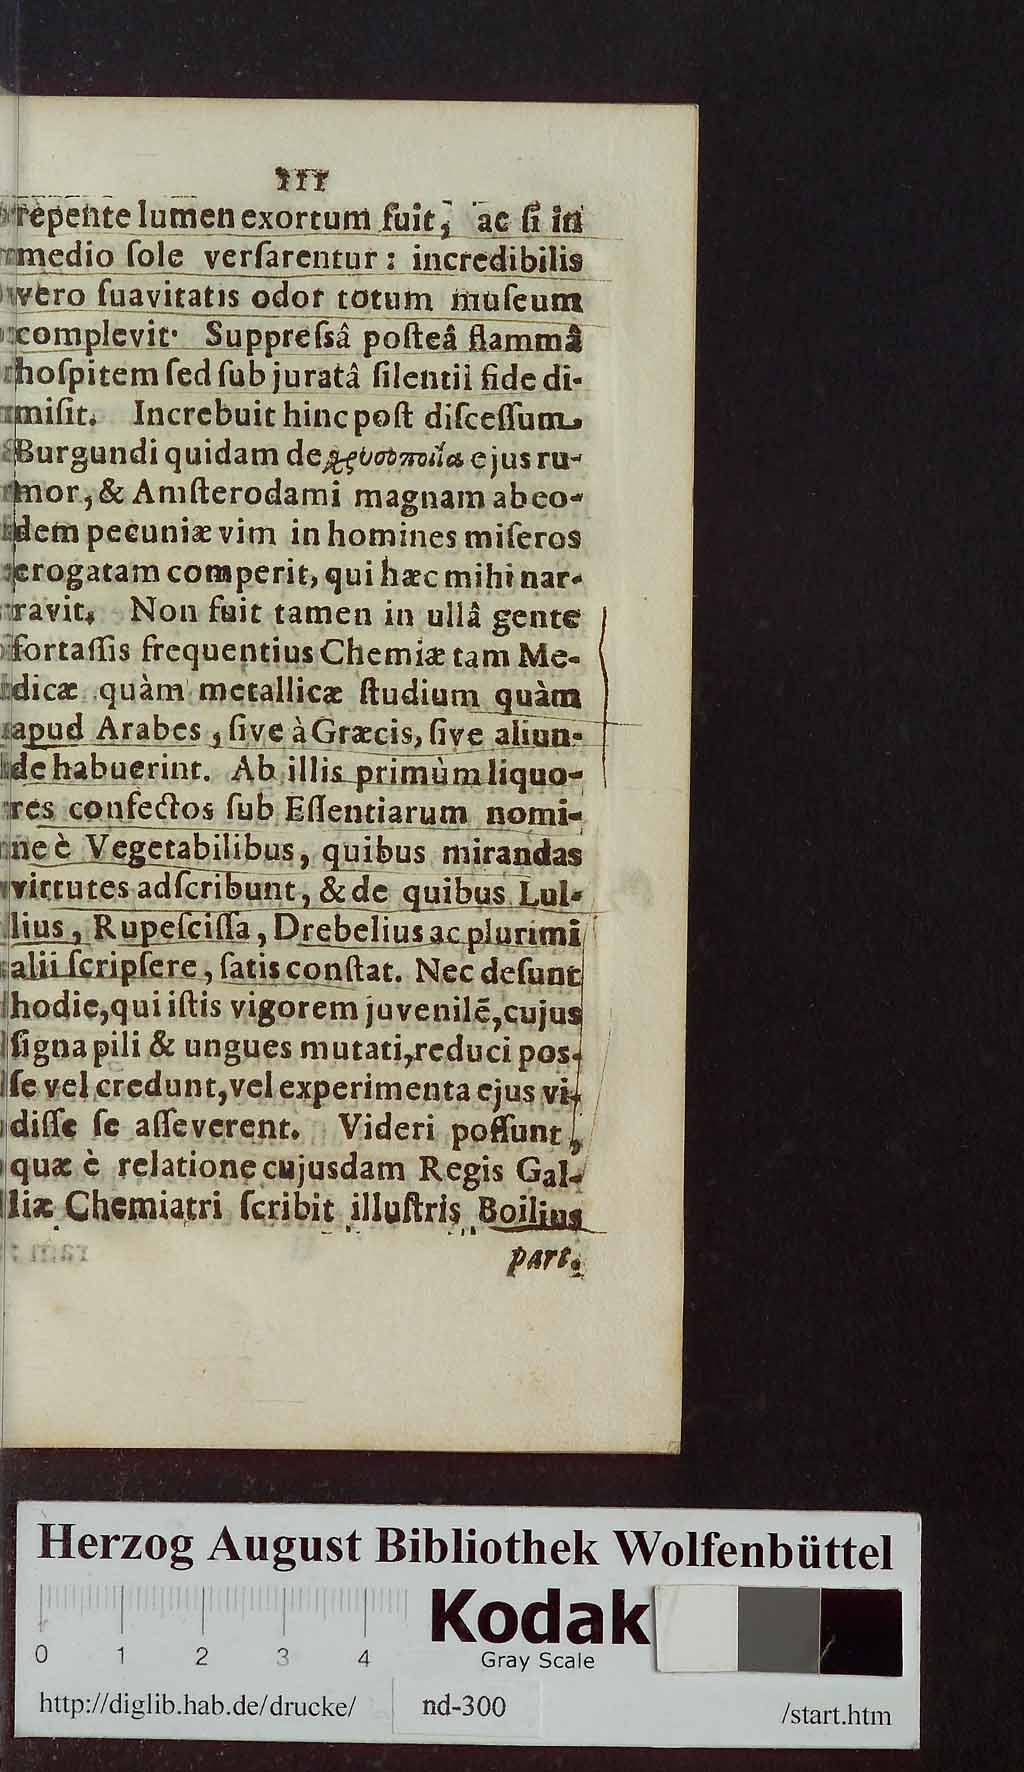 111
repente lumen exortum fuit, ac ſi in
medio ſole verſarentur: incredibilis
vero ſuavitatis odor totum muſeum
complevit. Suppreſsâ poſteâ flammâ
hoſpitem ſed ſub juratâ ſilentii fide di-
miſit. Increbuit hinc poſt diſceſſum
Burgundi quidam de χρυσοποιία ejus ru-
mor, & Amſterodami magnam ab eo-
dem pecuniæ vim in homines miſeros
erogatam comperit, qui hæc mihi nar-
ravit. Non fuit tamen in ullâ gente
fortaſſis frequentius Chemiæ tam Me-
dicæ quàm metallicæ ſtudium quàm
apud Arabes, ſive à Græcis, ſive aliun-
de habuerint. Ab illis primùm liquo-
res confectos ſub Eſſentiarum nomi-
ne è Vegetabilibus, quibus mirandas
virtutes adſcribunt, & de quibus Lul-
lius, Rupeſciſſa, Drebelius ac plurimi
alii ſcripſere, ſatis conſtat. Nec deſunt
hodie, qui iſtis vigorem juvenilē, cujus
ſigna pili & ungues mutati, reduci pos-
ſe vel credunt, vel experimenta ejus vi-
diſſe ſe aſſeverent. Videri poſſunt,
quæ è relatione cujusdam Regis Gal-
liæ Chemiatri ſcribit illuſtris Boilius
part.
Herzog August Bibliothek Wolfenbüttel
0 1 2 3 4
Kodak
Gray Scale
http://diglib.hab.de/drucke/ nd-300 /start.htm